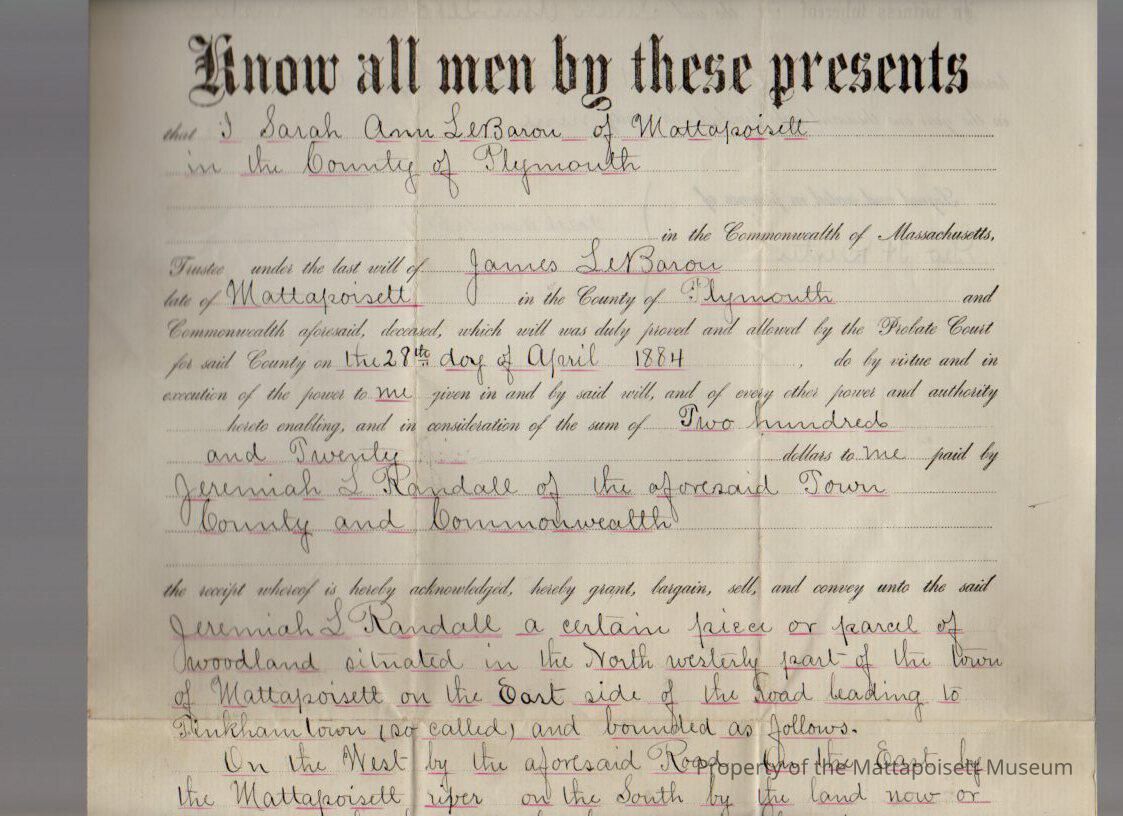 Know all men by these presents
that I Sarah Ann LeBaron of Mattapoisett
in the County of Plymouth
in the Commonwealth of Massachusetts,
Trustee under the last will of James LeBaron
late of Mattapoisett in the County of Plymouth and
Commonwealth aforesaid, deceased, which will was duly proved and allowed by the Probate Court
for said County on the 28th day of April 1884 , do by virtue and in
execution of the power to me given in and by said will, and of every other power and authority
hereto enabling, and in consideration of the sum of Two hundred
and Twenty dollars to me paid by
Jeremiah L Randall of the aforesaid Town
County and Commonwealth
the receipt whereof is hereby acknowledged, hereby grant, bargain, sell, and convey unto the said
Jeremiah L Randall a certain piece or parcel of
woodland situated in the North westerly part of the town
of Mattapoisett on the East side of the Road leading to
Tinkhamtown (so called) and bounded as follows.
On the West by the aforesaid Road On the East by
Property of the Mattapoisett Museum
the Mattapoisett river on the South by the land now or